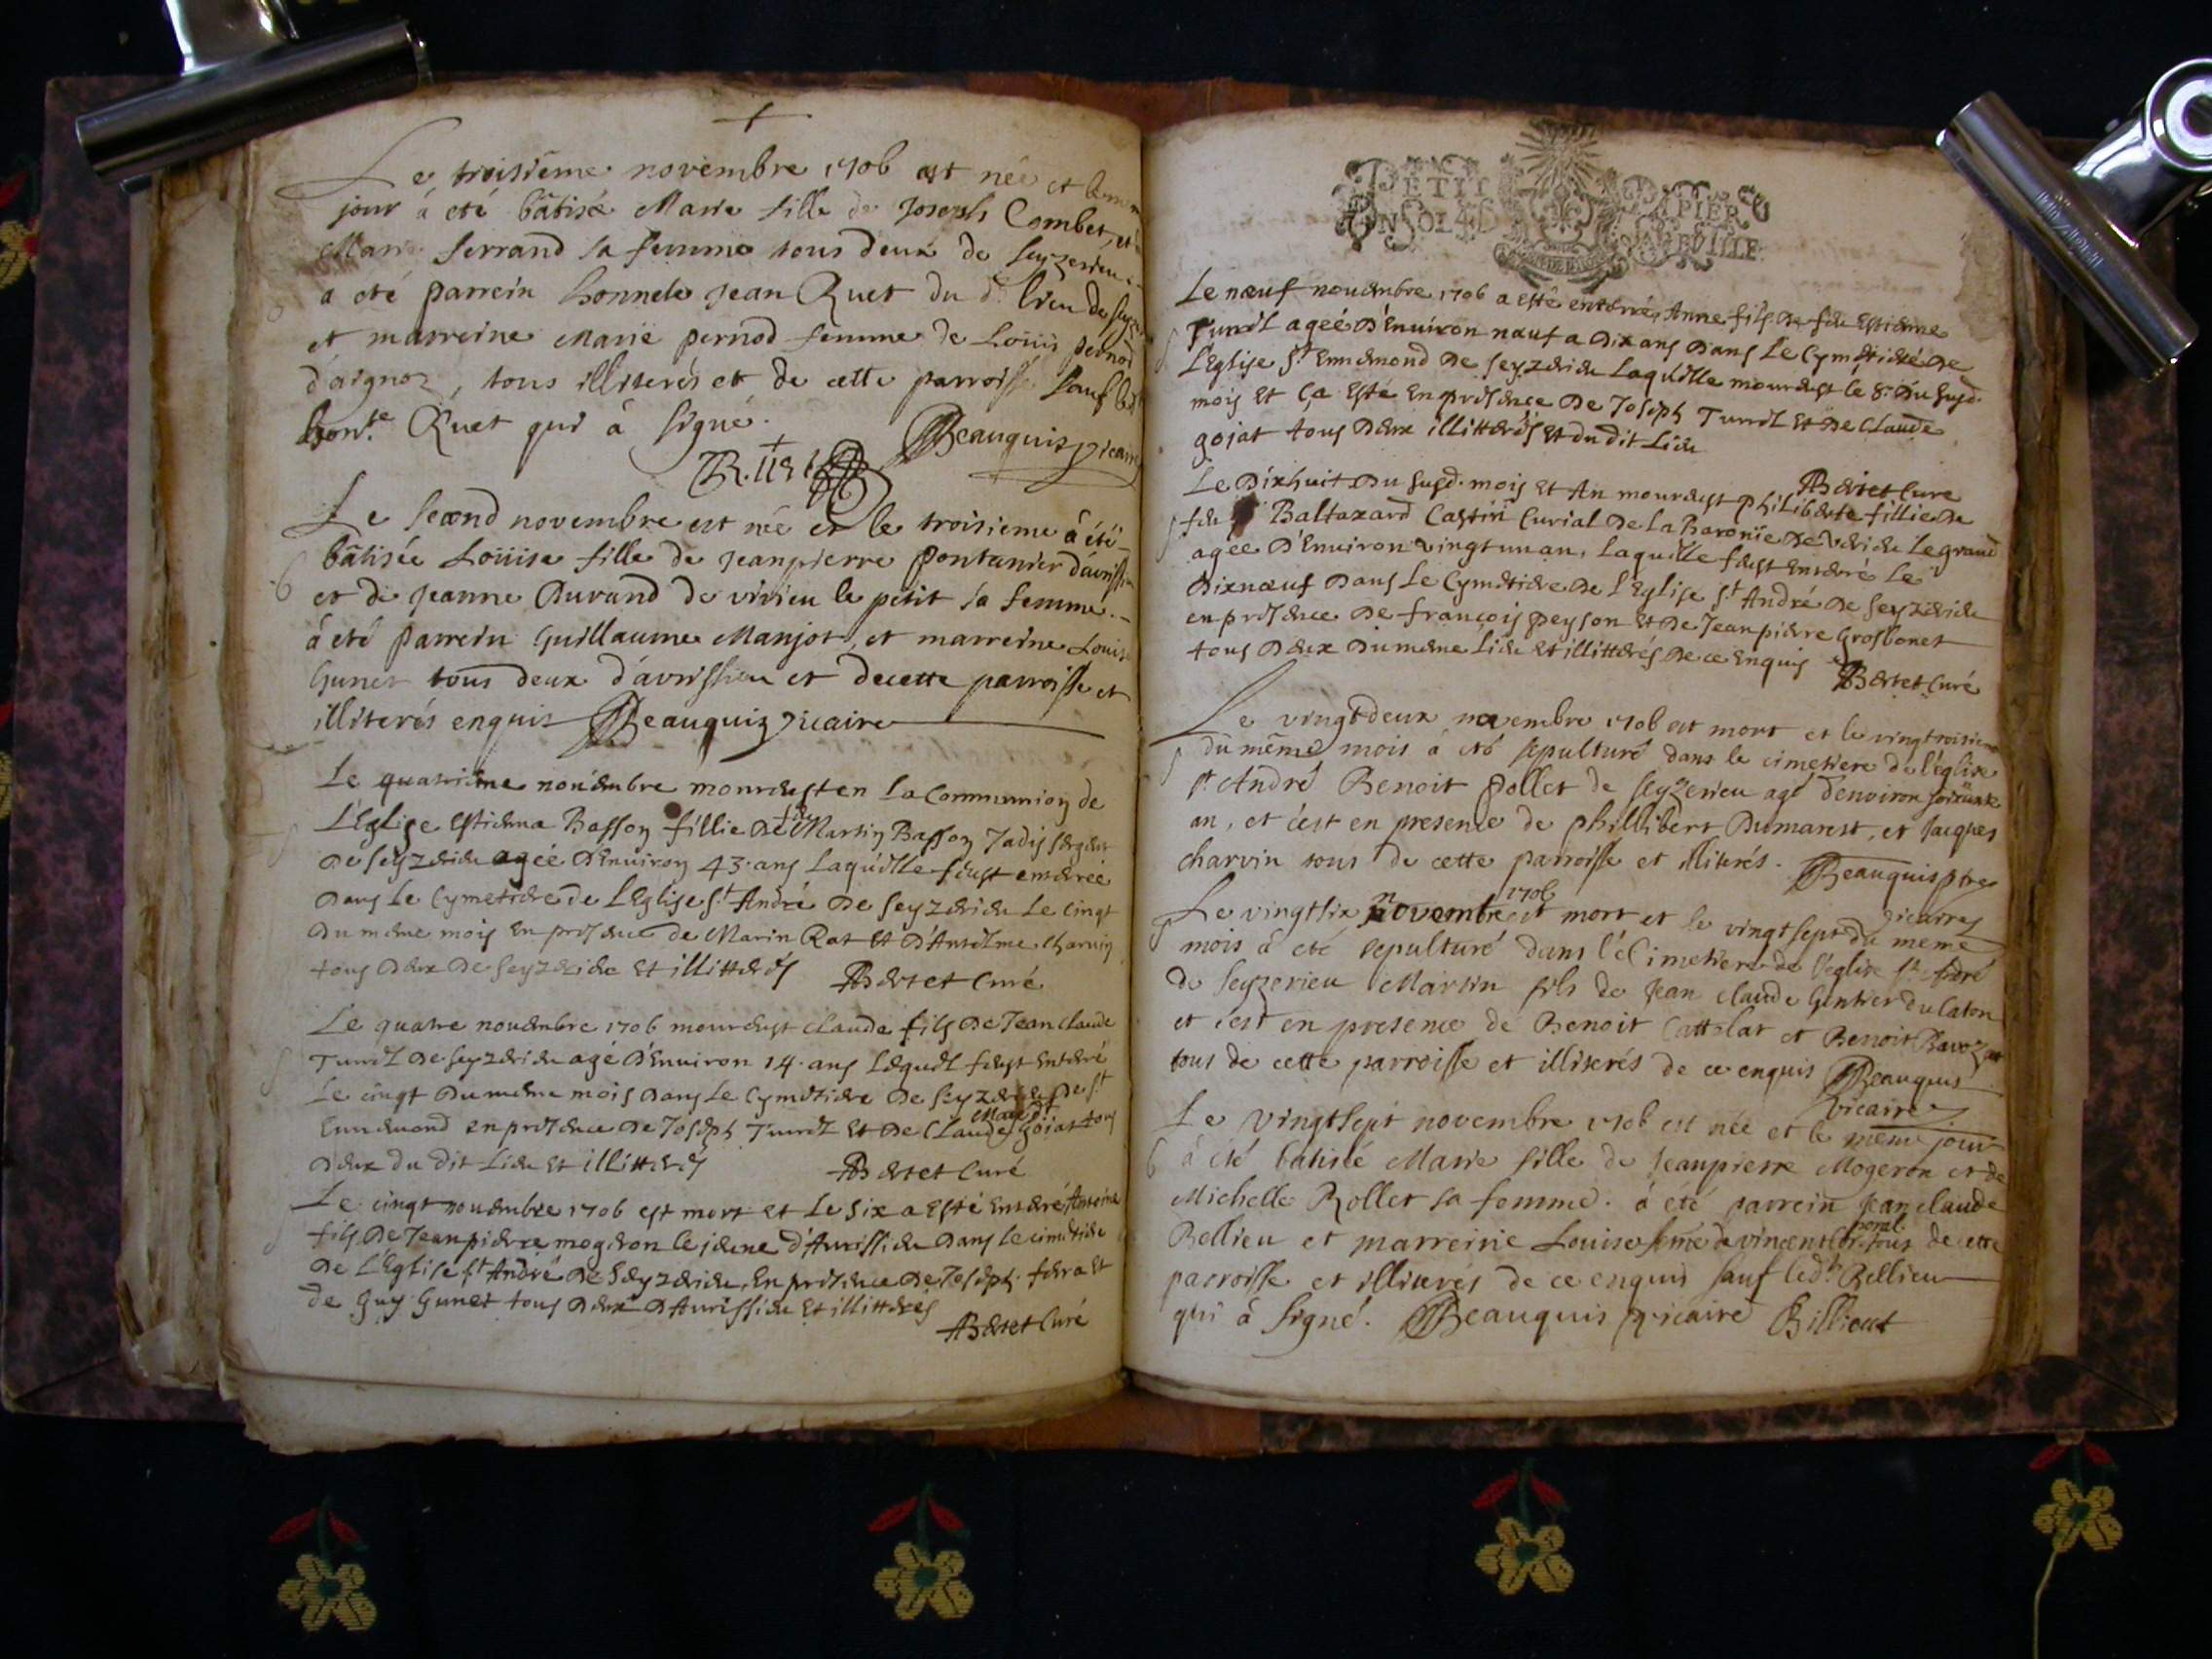 Le troisiême novembre 1706 est née et le mem
jour á eté bâtisée Marie fille de Joseph Combet, et
Marie ferrand sa femme tous deux de seyzerieu
a eté parrein honnete Jean Ruet du d. lieu de sey
et marreine Marie pernod femme de Loüis pernod
d'aignoz, tous illiterés et de cette parroisse sauf led
hon.te Ruet qui à signé.
Beauquis vicaire
R.uet
Le second novembre est née et le troisieme â été
bâtisée Loüise fille de Jeanpierre pontanier d'avrissieu
et de Jeanne Durand de virieu le petit sa femme.
á eté parrein Guillaume Manjot, et marreine Louise
Gunet tous deux d'avrissieu et de cette parroisse et
illiterés enquis Beauquis vicaire
Le quatrieme nouembre mourust en la Communion de
L'Eglise Estiena Basson fillie de feu Martin Basson Jadis sergent
de seyzerieu agée d'Enuiron 43. ans laquelle feust enterée
dans le Cymetiere de l'Eglise S.t André de Seyzerieu le cinqt
du meme mois en presence de Marin Rat et d'Antelme Charuin
tous deux de seyzerieu et illitterés Bertet Curé
Le quatre nouembre 1706 mourust Claude fils de Jean claude
Tunel de seyzerieu agé d'Enuiron 14. ans lequel feust enterré
le cinqt du meme mois dans le Cymetiere de Seyzerieu de S.t
Ennemond en presence de Joseph Tunel et de Claude Gojat tous
deux du dit lieu et illitterés Bertet Curé
Le cinqt nouembre 1706 est mort et le six a Esté enterré Antoine
fils de Jeanpierre mogeron le jeune d'Aurissieu dans le cimetiere
de l'Eglise S.t André de Seyzerieu, en presence de Joseph fera et
de Guy Gunet tous deux d'Aurissieu et illitterés
Bertet Curé
PETIT PAPIER
UN SOL 4 D LA FEUILLE
Le nœuf nouembre 1706 a esté enterrée Anne fils de feu Estienne
Tunel ageé d'Enuiron nœuf a dix ans dans le Cymetiere de
l'Eglise S.t Ennemond de seyzerieu laquelle mourust le 8.e du susd.
mois et ça esté en presence de Joseph Tunel et de Claude
gojat tous deux illitterés et du dit Lieu
Bertet Cure
Le dixhuit du susd. mois et An mourust philiberte fillie de
feu Baltazard Castin Curial de la Baronie de virieu le grand
agée d'Enuiron vingt un an, laquelle feust enterré le
dixnœuf dans le Cymetiere de l'Eglise S.t André de seyzerieu
en presence de françois peyson et de Jeanpierre Grosbonet
tous deux du meme lieu et illitterés de ce enquis Bertet Curé
Le vingtdeux novembre 1706 est mort et le vingtroisieme
du même mois à eté sepulturé dans le cimetiere de l'église
s.t André Benoit pollet de seyzerieu agé d'environ soixante
an, et c'est en presence de phillibert Dumarest, et Jacques
charvin tous de cette parroisse et illiterés. Beauquis ptre
vicaire
Le vingtsix novembre 1706 est mort et le vingtsept du meme
mois à eté sepulturé dans le Cimetiere de l'eglise s.t André
de seyzerieu Martin fils de Jean claude Gentier du Caton
et c'est en presence de Benoit Cattelat et Benoit Ravozat
tous de cette parroisse et illiterés de ce enquis Beauquis
vicaire
Le vingtsept novembre 1706 est née et le même jour
â eté batisée Marie fille de Jeanpierre Mogeron et de
Michelle Rollet sa femme. á été parrein Jean claude
Bellieu et marreine Louise feme de vincent tous de cette
parroisse et illiterés de ce enquis sauf led.t Bellieu
qui à signé. Beauquis vicaire Billieut